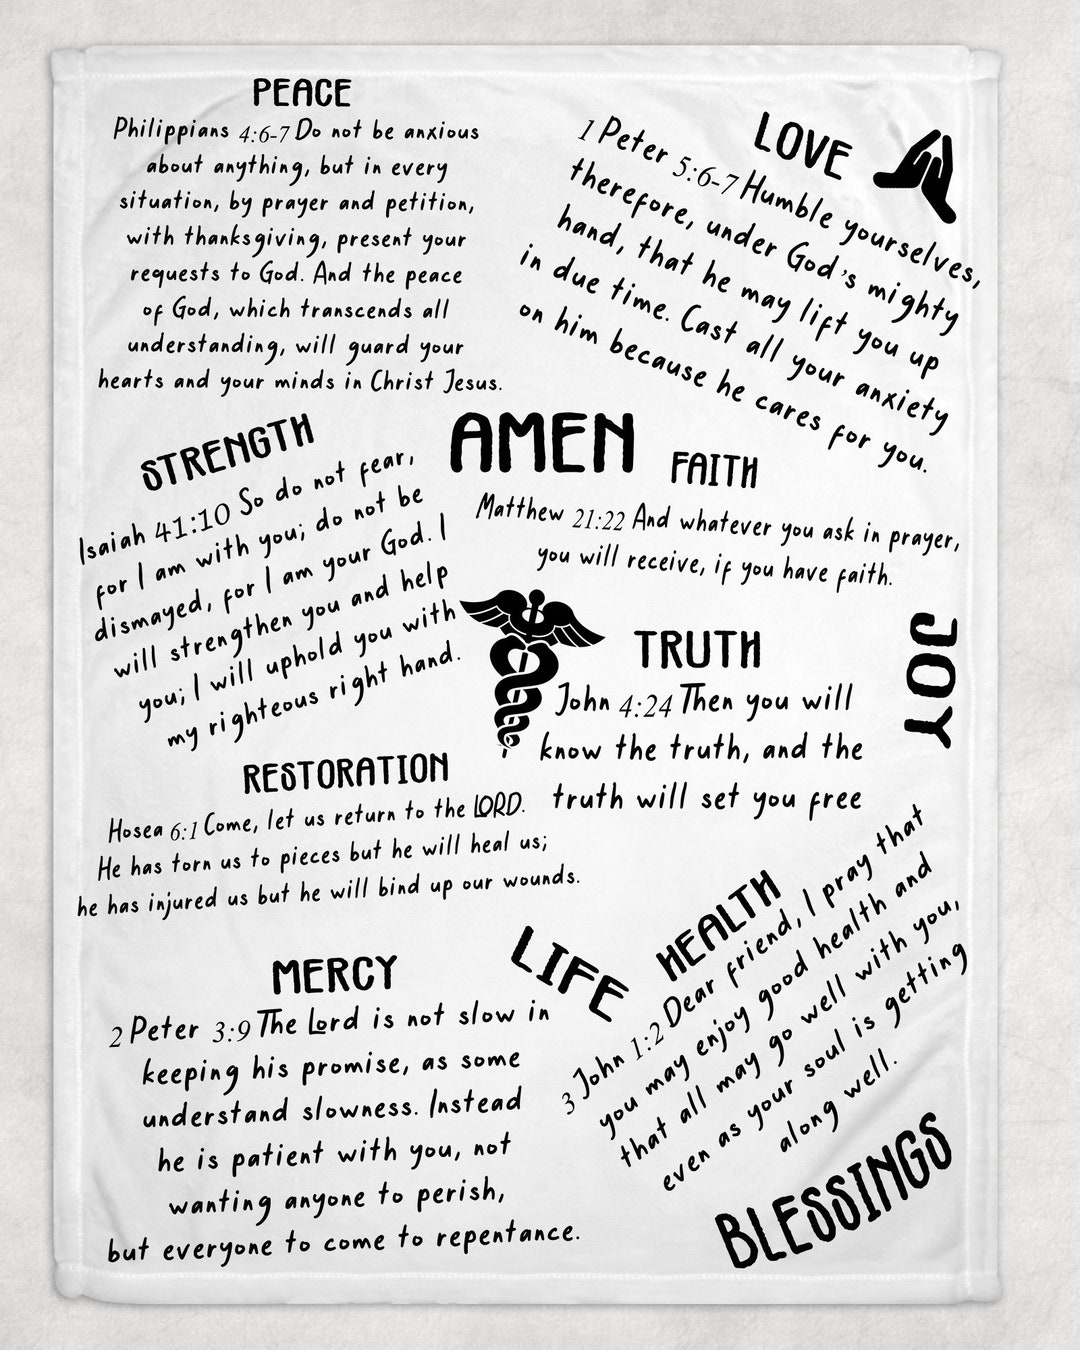 PEACE
Philippians 4:6-7 Do not be anxious
about anything, but in every
situation, by prayer and petition,
with thanksgiving, present your
requests to God. And the peace
of God, which transcends all
understanding, will guard your
hearts and your minds in Christ Jesus.
LOVE
1 Peter 5:6-7 Humble yourselves,
therefore, under God's mighty
hand, that he may lift you up
in due time. Cast all your anxiety
on him because he cares for you.
AMEN
STRENGTH
Isaiah 41:10 So do not fear,
for I am with you; do not be
dismayed, for I am your God. I
will strengthen you and help
you; I will uphold you with
my righteous right hand.
FAITH
Matthew 21:22 And whatever you ask in prayer,
you will receive, if you have faith.
JOY
TRUTH
John 4:24 Then you will
know the truth, and the
truth will set you free
RESTORATION
Hosea 6:1 Come, let us return to the LORD.
He has torn us to pieces but he will heal us;
he has injured us but he will bind up our wounds.
LIFE
HEALTH
3 John 1:2 Dear friend, I pray that
you may enjoy good health and
that all may go well with you,
even as your soul is getting
along well.
MERCY
2 Peter 3:9 The Lord is not slow in
keeping his promise, as some
understand slowness. Instead
he is patient with you, not
wanting anyone to perish,
but everyone to come to repentance.
BLESSINGS